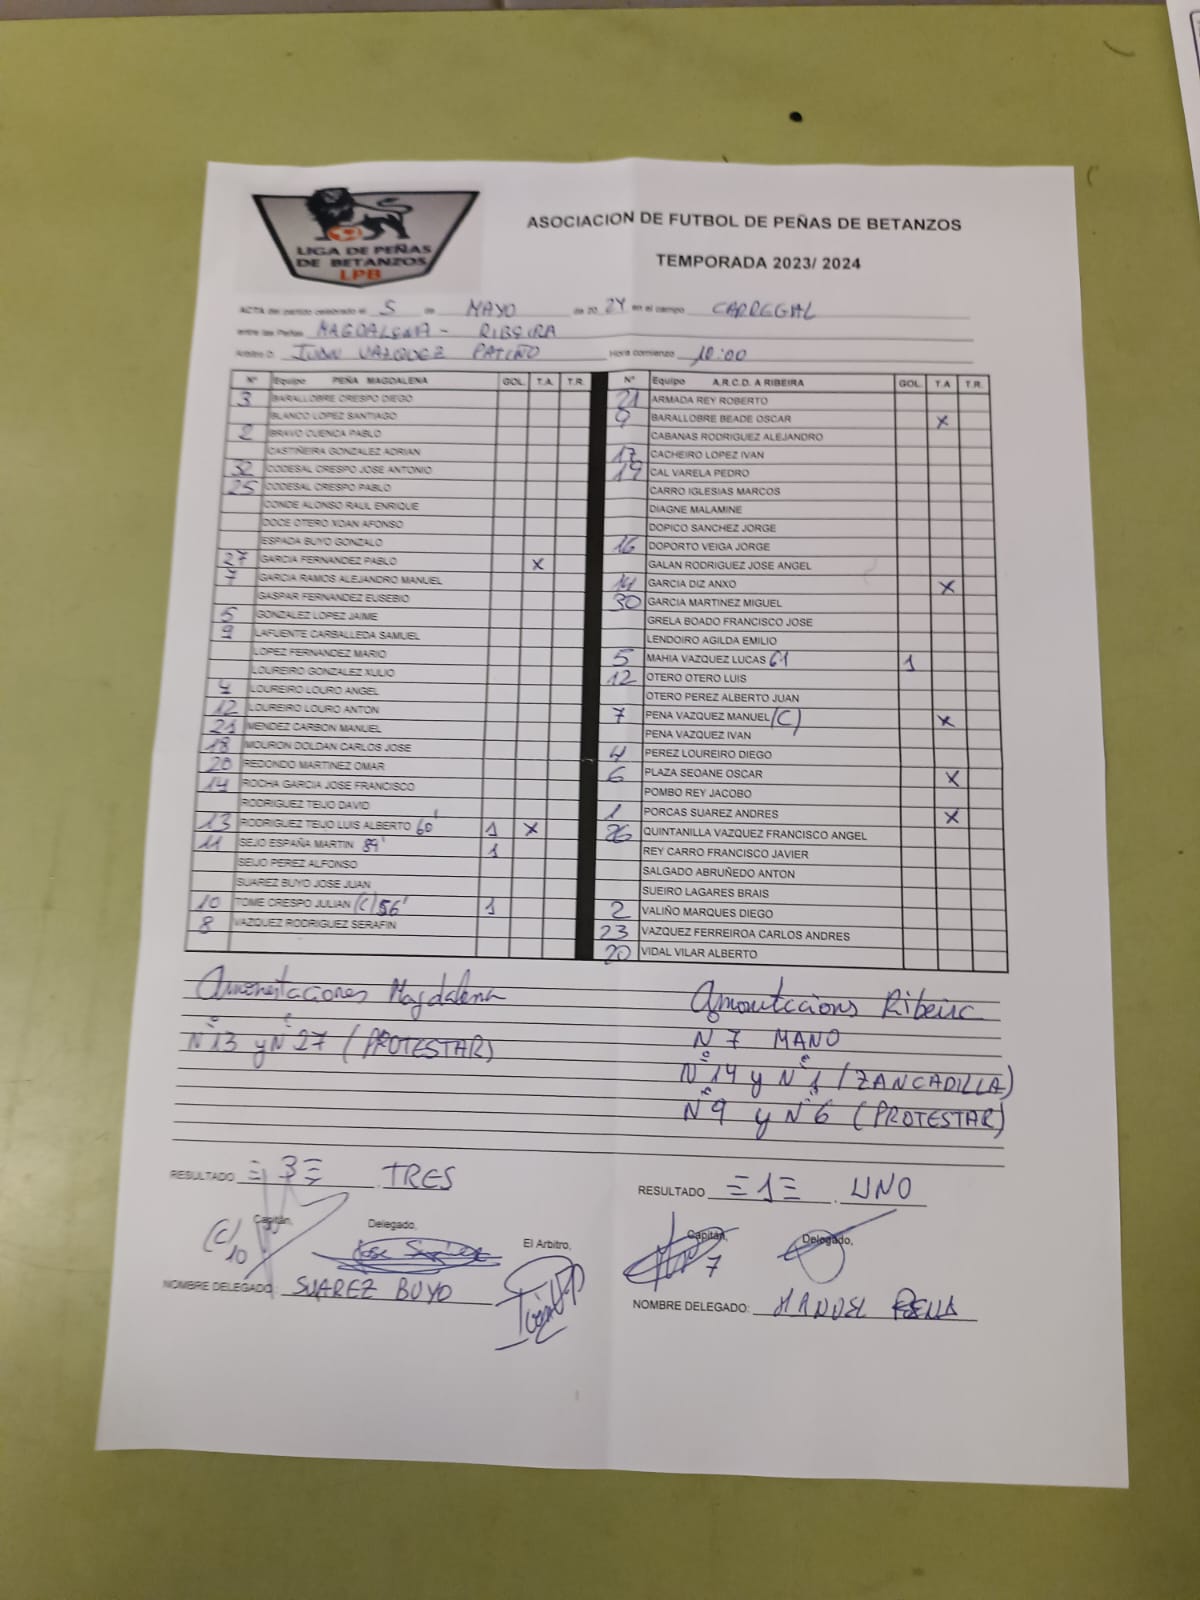 LIGA DE PEÑAS
DE BETANZOS
LPB
ASOCIACION DE FUTBOL DE PEÑAS DE BETANZOS
TEMPORADA 2023/ 2024
ACTA del partido celebrado el 5 de MAYO de 20 24 en el campo CARREGAL
entre las Peñas MAGDALENA - RIBEIRA
Arbitro D. JUAN VAZQUEZ PATIÑO Hora comienzo 10:00
Nº Equipo PEÑA MAGDALENA GOL. T.A. T.R. Nº Equipo A.R.C.D. A RIBEIRA GOL. T.A T.R.
3 BARALLOBRE CRESPO DIEGO 21 ARMADA REY ROBERTO
BLANCO LOPEZ SANTIAGO 9 BARALLOBRE BEADE OSCAR X
2 BRAVO CUENCA PABLO CABANAS RODRIGUEZ ALEJANDRO
CASTIÑEIRA GONZALEZ ADRIAN 17 CACHEIRO LOPEZ IVAN
32 CODESAL CRESPO JOSE ANTONIO 19 CAL VARELA PEDRO
25 CODESAL CRESPO PABLO CARRO IGLESIAS MARCOS
CONDE ALONSO RAUL ENRIQUE DIAGNE MALAMINE
DOCE OTERO XOAN AFONSO DOPICO SANCHEZ JORGE
ESPADA BUYO GONZALO 16 DOPORTO VEIGA JORGE
27 GARCIA FERNANDEZ PABLO X GALAN RODRIGUEZ JOSE ANGEL
7 GARCIA RAMOS ALEJANDRO MANUEL 14 GARCIA DIZ ANXO X
GASPAR FERNANDEZ EUSEBIO 30 GARCIA MARTINEZ MIGUEL
5 GONZALEZ LOPEZ JAIME GRELA BOADO FRANCISCO JOSE
9 LAFUENTE CARBALLEDA SAMUEL LENDOIRO AGILDA EMILIO
LOPEZ FERNANDEZ MARIO 5 MAHIA VAZQUEZ LUCAS 61 1
LOUREIRO GONZALEZ XULIO 12 OTERO OTERO LUIS
4 LOUREIRO LOURO ANGEL OTERO PEREZ ALBERTO JUAN
12 LOUREIRO LOURO ANTON 7 PENA VAZQUEZ MANUEL (C) X
21 MENDEZ CARBON MANUEL PENA VAZQUEZ IVAN
18 MOURON DOLDAN CARLOS JOSE 4 PEREZ LOUREIRO DIEGO
20 REDONDO MARTINEZ OMAR 6 PLAZA SEOANE OSCAR X
14 ROCHA GARCIA JOSE FRANCISCO POMBO REY JACOBO
RODRIGUEZ TEIJO DAVID 1 PORCAS SUAREZ ANDRES X
13 RODRIGUEZ TEIJO LUIS ALBERTO 60' 1 X 26 QUINTANILLA VAZQUEZ FRANCISCO ANGEL
11 SEJO ESPAÑA MARTIN 89' 1 REY CARRO FRANCISCO JAVIER
SEIJO PEREZ ALFONSO SALGADO ABRUÑEDO ANTON
SUAREZ BUYO JOSE JUAN SUEIRO LAGARES BRAIS
10 TOME CRESPO JULIAN (C) 56' 1 2 VALIÑO MARQUES DIEGO
8 VAZQUEZ RODRIGUEZ SERAFIN 23 VAZQUEZ FERREIROA CARLOS ANDRES
20 VIDAL VILAR ALBERTO
Amonestaciones Magdalena
Nº13 y Nº27 (PROTESTAR)
Ribeira
Nº 7 MANO
Nº14 y Nº1 (ZANCADILLA)
Nº9 y Nº6 (PROTESTAR)
RESULTADO =3= TRES RESULTADO =1= UNO
Capitán, Delegado, El Arbitro, Capitán, Delegado,
(C) 10 7
NOMBRE DELEGADO: SUAREZ BUYO
NOMBRE DELEGADO: MANUEL PENA